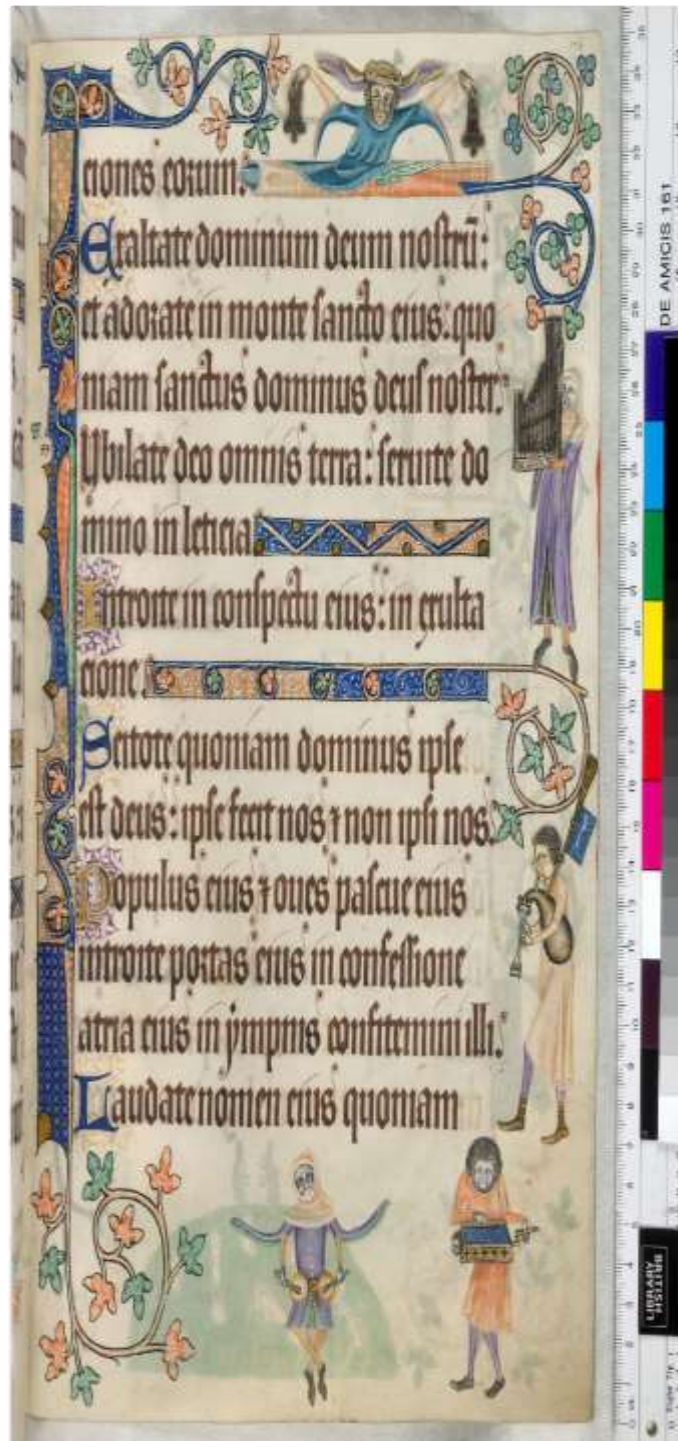 ciones eorum.
Exaltate dominum deum nostrū:
et adorate in monte sancto eius: quo
niam sanctus dominus deus noster.
Iubilate deo omnis terra: seruite do
mino in leticia
Introite in conspectu eius: in exulta
cione.
Scitote quoniam dominus ipse
est deus: ipse fecit nos ⁊ non ipsi nos.
Populus eius ⁊ oues pascue eius
introite portas eius in confessione
atria eius in ympnis confitemini illi.
Laudate nomen eius quoniam
DE AMICIS 161
BRITISH
LIBRARY